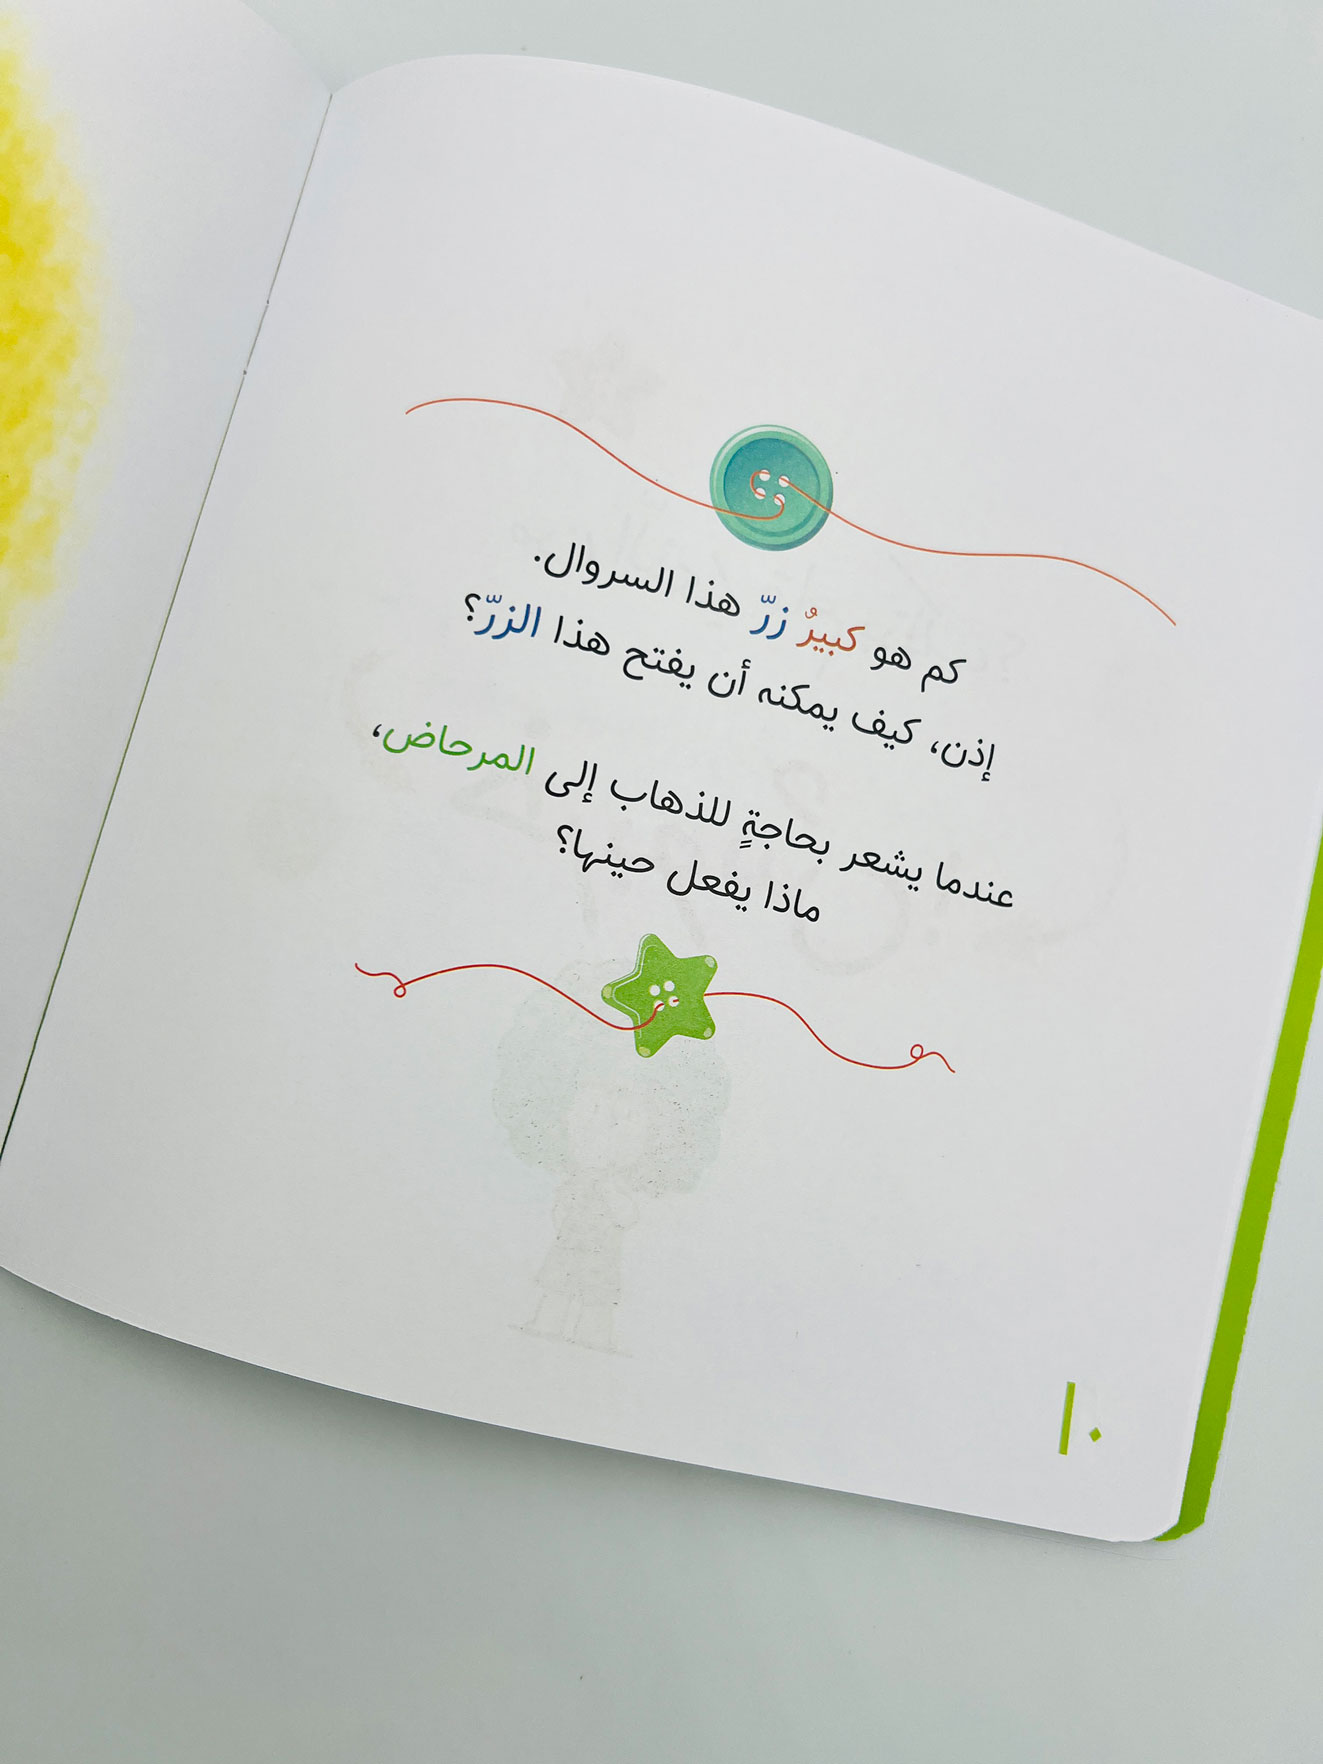 كم هو كبيرٌ زرّ هذا السروال.
إذن، كيف يمكنه أن يفتح هذا الزرّ؟
عندما يشعر بحاجةٍ للذهاب إلى المرحاض،
ماذا يفعل حينها؟
١٠